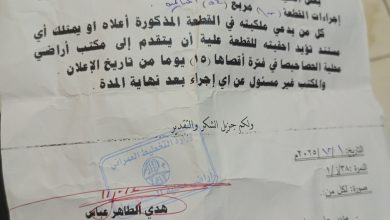 إجراءات القطعة مربع
كل من يدعي ملكيته في القطعة المذكورة أعلاه او يمتلك أي
مستند تؤيد احقيته للقطعة علية أن يتقدم إلى مكتب أراضي
محلية الخصاصيص في فترة أقصاها (١٥) يوما من تاريخ الإعلان
والمكتب غير مسئول عن إي إجراء بعد نهاية المدة .
ولكم جزيل الشكر والتقدير
وزارة التخطيط العمراني
التاريخ: ٢٠٢٥/٧/١م
النمرة: ١/أ/٣٨
صورة لكل من:
هدي الطاهر عباس